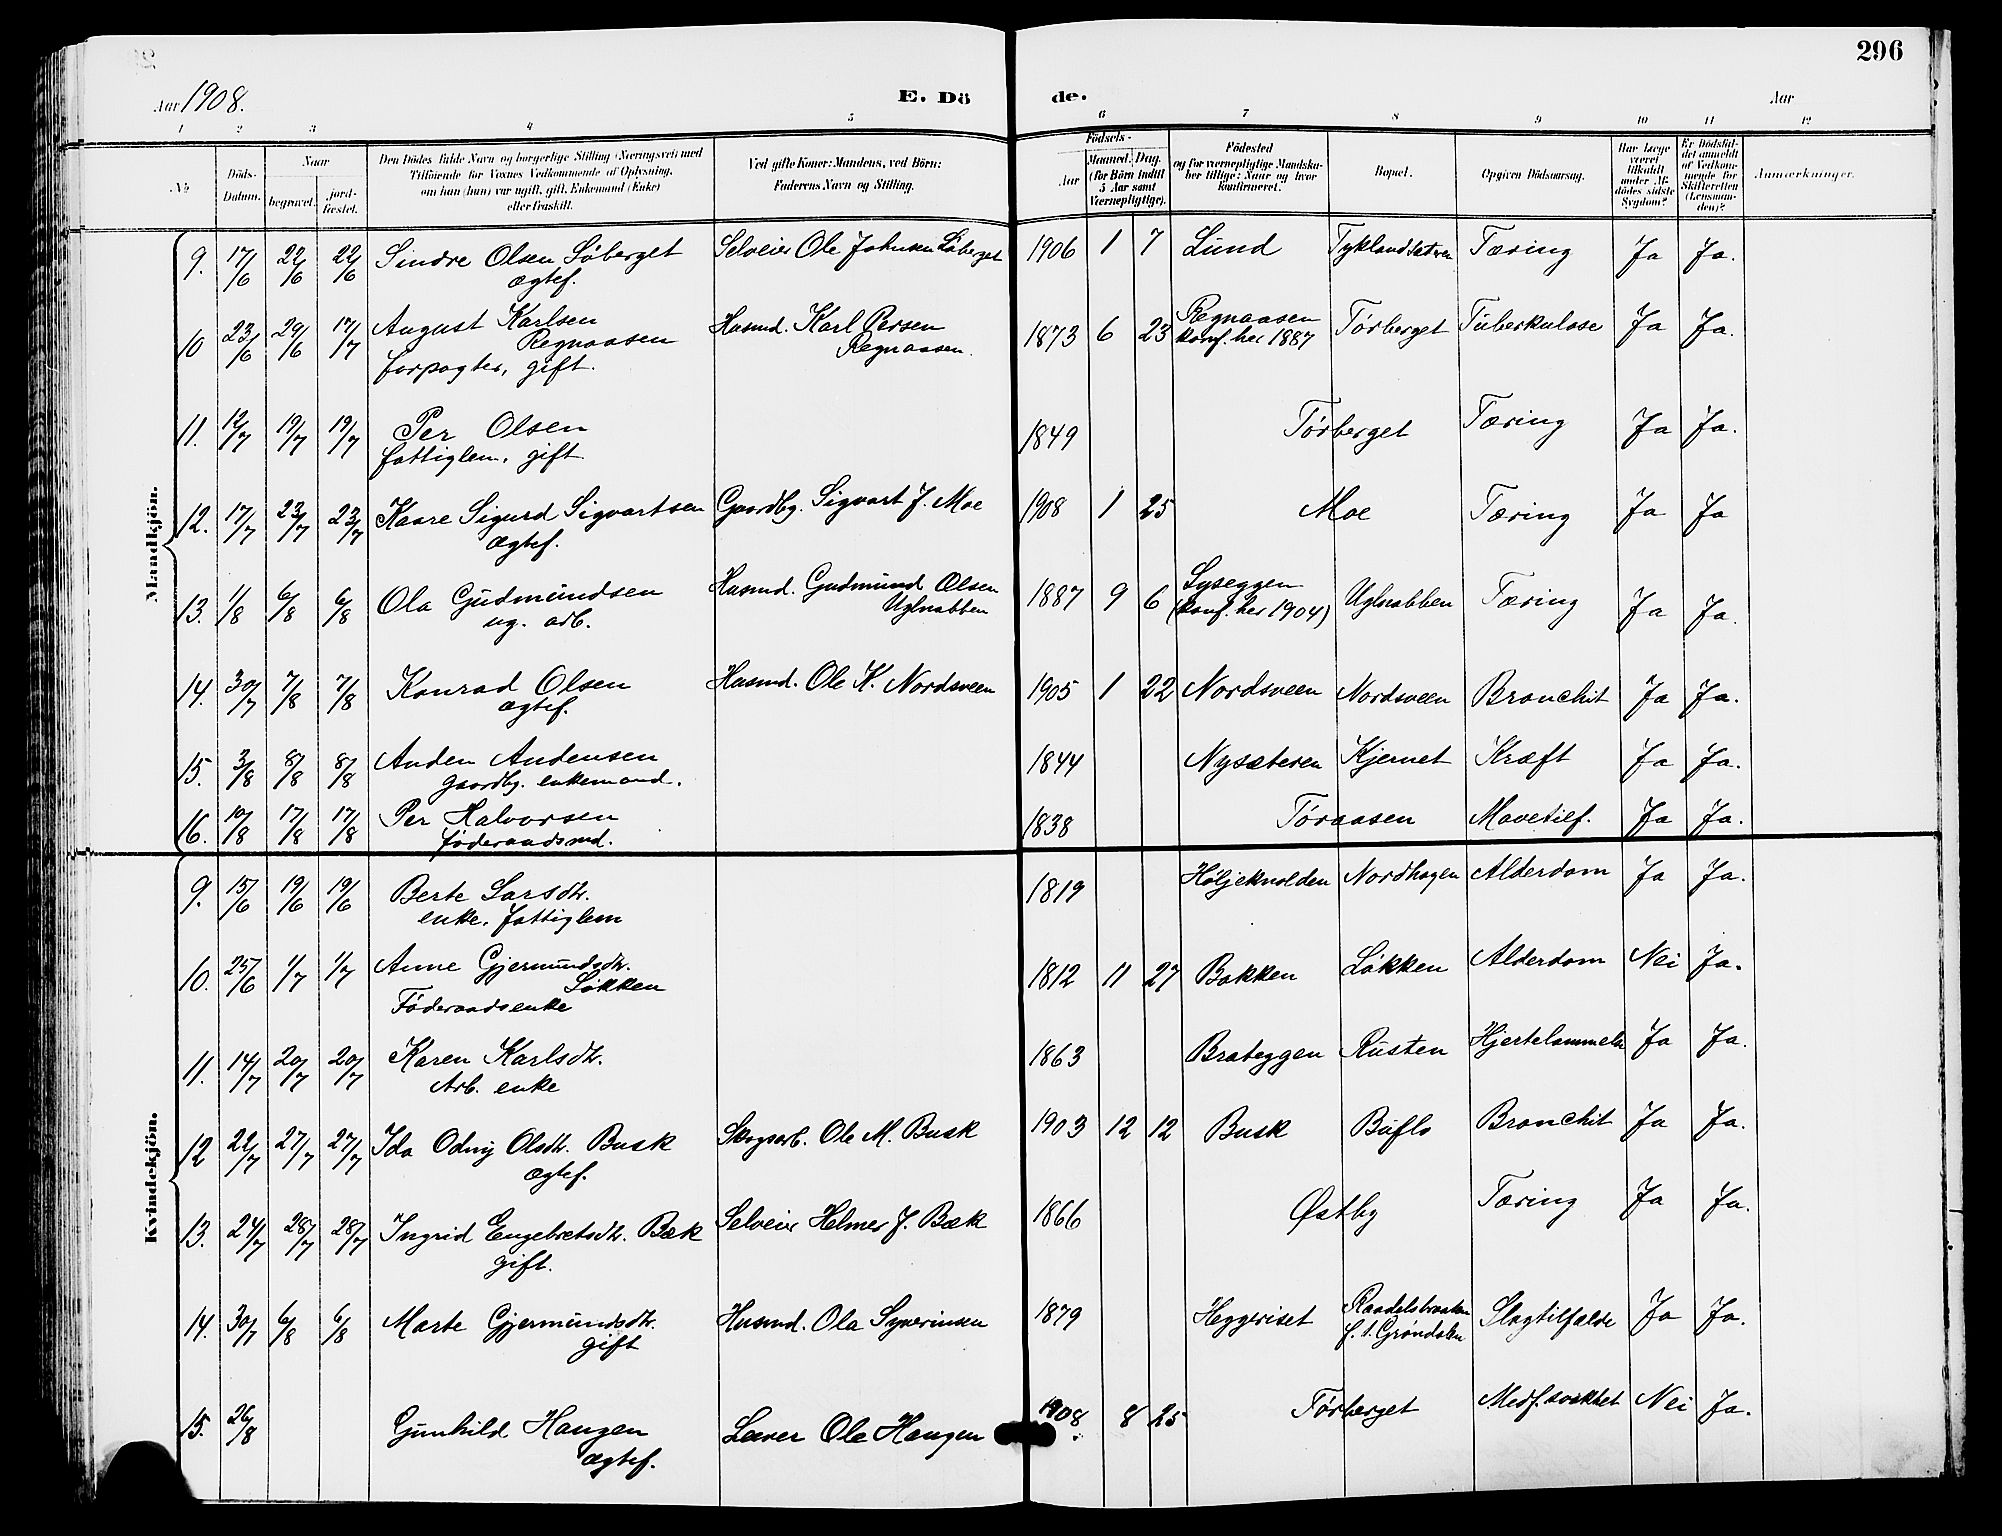 296
Aar 1908. E. Dö de. Aar
1 2 3 4 5 6 7 8 9 10 11 12
No. Döds-Datum. Naar begravet. jord-fæstet. Den Dödes fulde Navn og borgerlige Stilling (Næringsvei) med Tilföiende for Voxnes Vedkommende af Oplysning, om han (hun) var ugift, gift, Enkemand (Enke) eller fraskilt. Ved gifte Koner: Mandens, ved Börn: Faderens Navn og Stilling. Födsels- Aar Maaned. Dag. (for Börn indtil 5 Aar samt Værnepligtige). Födested og for værnepligtige Mandskaber tillige: Naar og hvor konfirmeret. Bopæl. Opgiven Dödsaarsag. Har Læge været tilkaldt under Afdödes sidste Sygdom? Er Dödsfaldet anmeldt af Vedkommende for Skifteretten (Lensmanden)? Anmærkninger.
Mandkjön.
9. 17/6 22/6 22/6 Sindre Olsen Löberget Selveier Ole Johnsen Löberget 1906 1 7 Lund Tyklandsæteren Tæring Ja Ja.
ægtef.
10 23/6 29/6 17/7 August Karlsen Regnaasen Husmd. Karl Persen Regnaasen. 1873 6 23 Regnaasen konf. her 1887 Törberget Tuberkulose Ja Ja.
forpagter, gift.
11. 12/7 19/7 19/7 Per Olsen 1849 Törberget Tæring Ja Ja.
fattiglem, gift.
12. 17/7 23/7 23/7 Kaare Sigurd Sigvartsen Gaardbg. Sigvart J. Moe 1908 1 25 Moe Tæring Ja Ja
ægtef.
13. 1/8 6/8 6/8 Ola Gudmundsen Husmd. Gudmund Olsen Uglnabben 1887 9 6 Lyseggen (konf. her 1904) Uglnabben Tæring Ja Ja.
ug. arb.
14. 30/7 7/8 7/8 Konrad Olsen Husmd. Ole K. Nordsveen 1905 1 22 Nordsveen Nordsveen Bronchit Ja Ja.
ægtef.
15. 3/8 8/8 8/8 Anden Andensen 1844 Nysæteren Kjernet Kræft Ja Ja.
gaardbg. enkemand.
16. 10/8 17/8 17/8 Per Halvorsen 1838 Töraasen Mavetilf. Ja Ja.
föderaadsmd.
Kvindekjön.
9. 15/6 19/6 19/6 Berte Larsdtr. 1819 Höljeknolden Nordhagen Alderdom Ja Ja.
enke, fattiglem
10. 25/6 1/7 1/7 Anne Gjermundsdtr. Løkken 1812 11 27 Bakken Løkken Alderdom Nei Ja.
Föderaadsenke
11. 14/7 20/7 20/7 Karen Karlsdtr. 1863 Brateggen Rusten Hjertelammelse Ja Ja.
Arb. enke
12 22/7 27/7 27/7 Ida Odny Olsdtr. Busk Skogsarb. Ole M. Busk 1903 12 12 Busk Buflo Bronchit Ja Ja.
ægtef.
13. 24/7 28/7 28/7 Ingrid Engebretsdtr. Bæk Selveier Helmer J. Bæk 1866 Østby Tæring Ja Ja.
gift.
14. 30/7 6/8 6/8 Marte Gjermundsdtr. Husmd. Ola Syverinsen 1879 Heggeriset f. s. Grøndalen Slagtilfælde Ja Ja.
gift
15. 26/8 Gunhild Haugen Lærer Ole Haugen 1908. 8 25 Törberget Medf. svakhet Nei Ja.
ægtef.